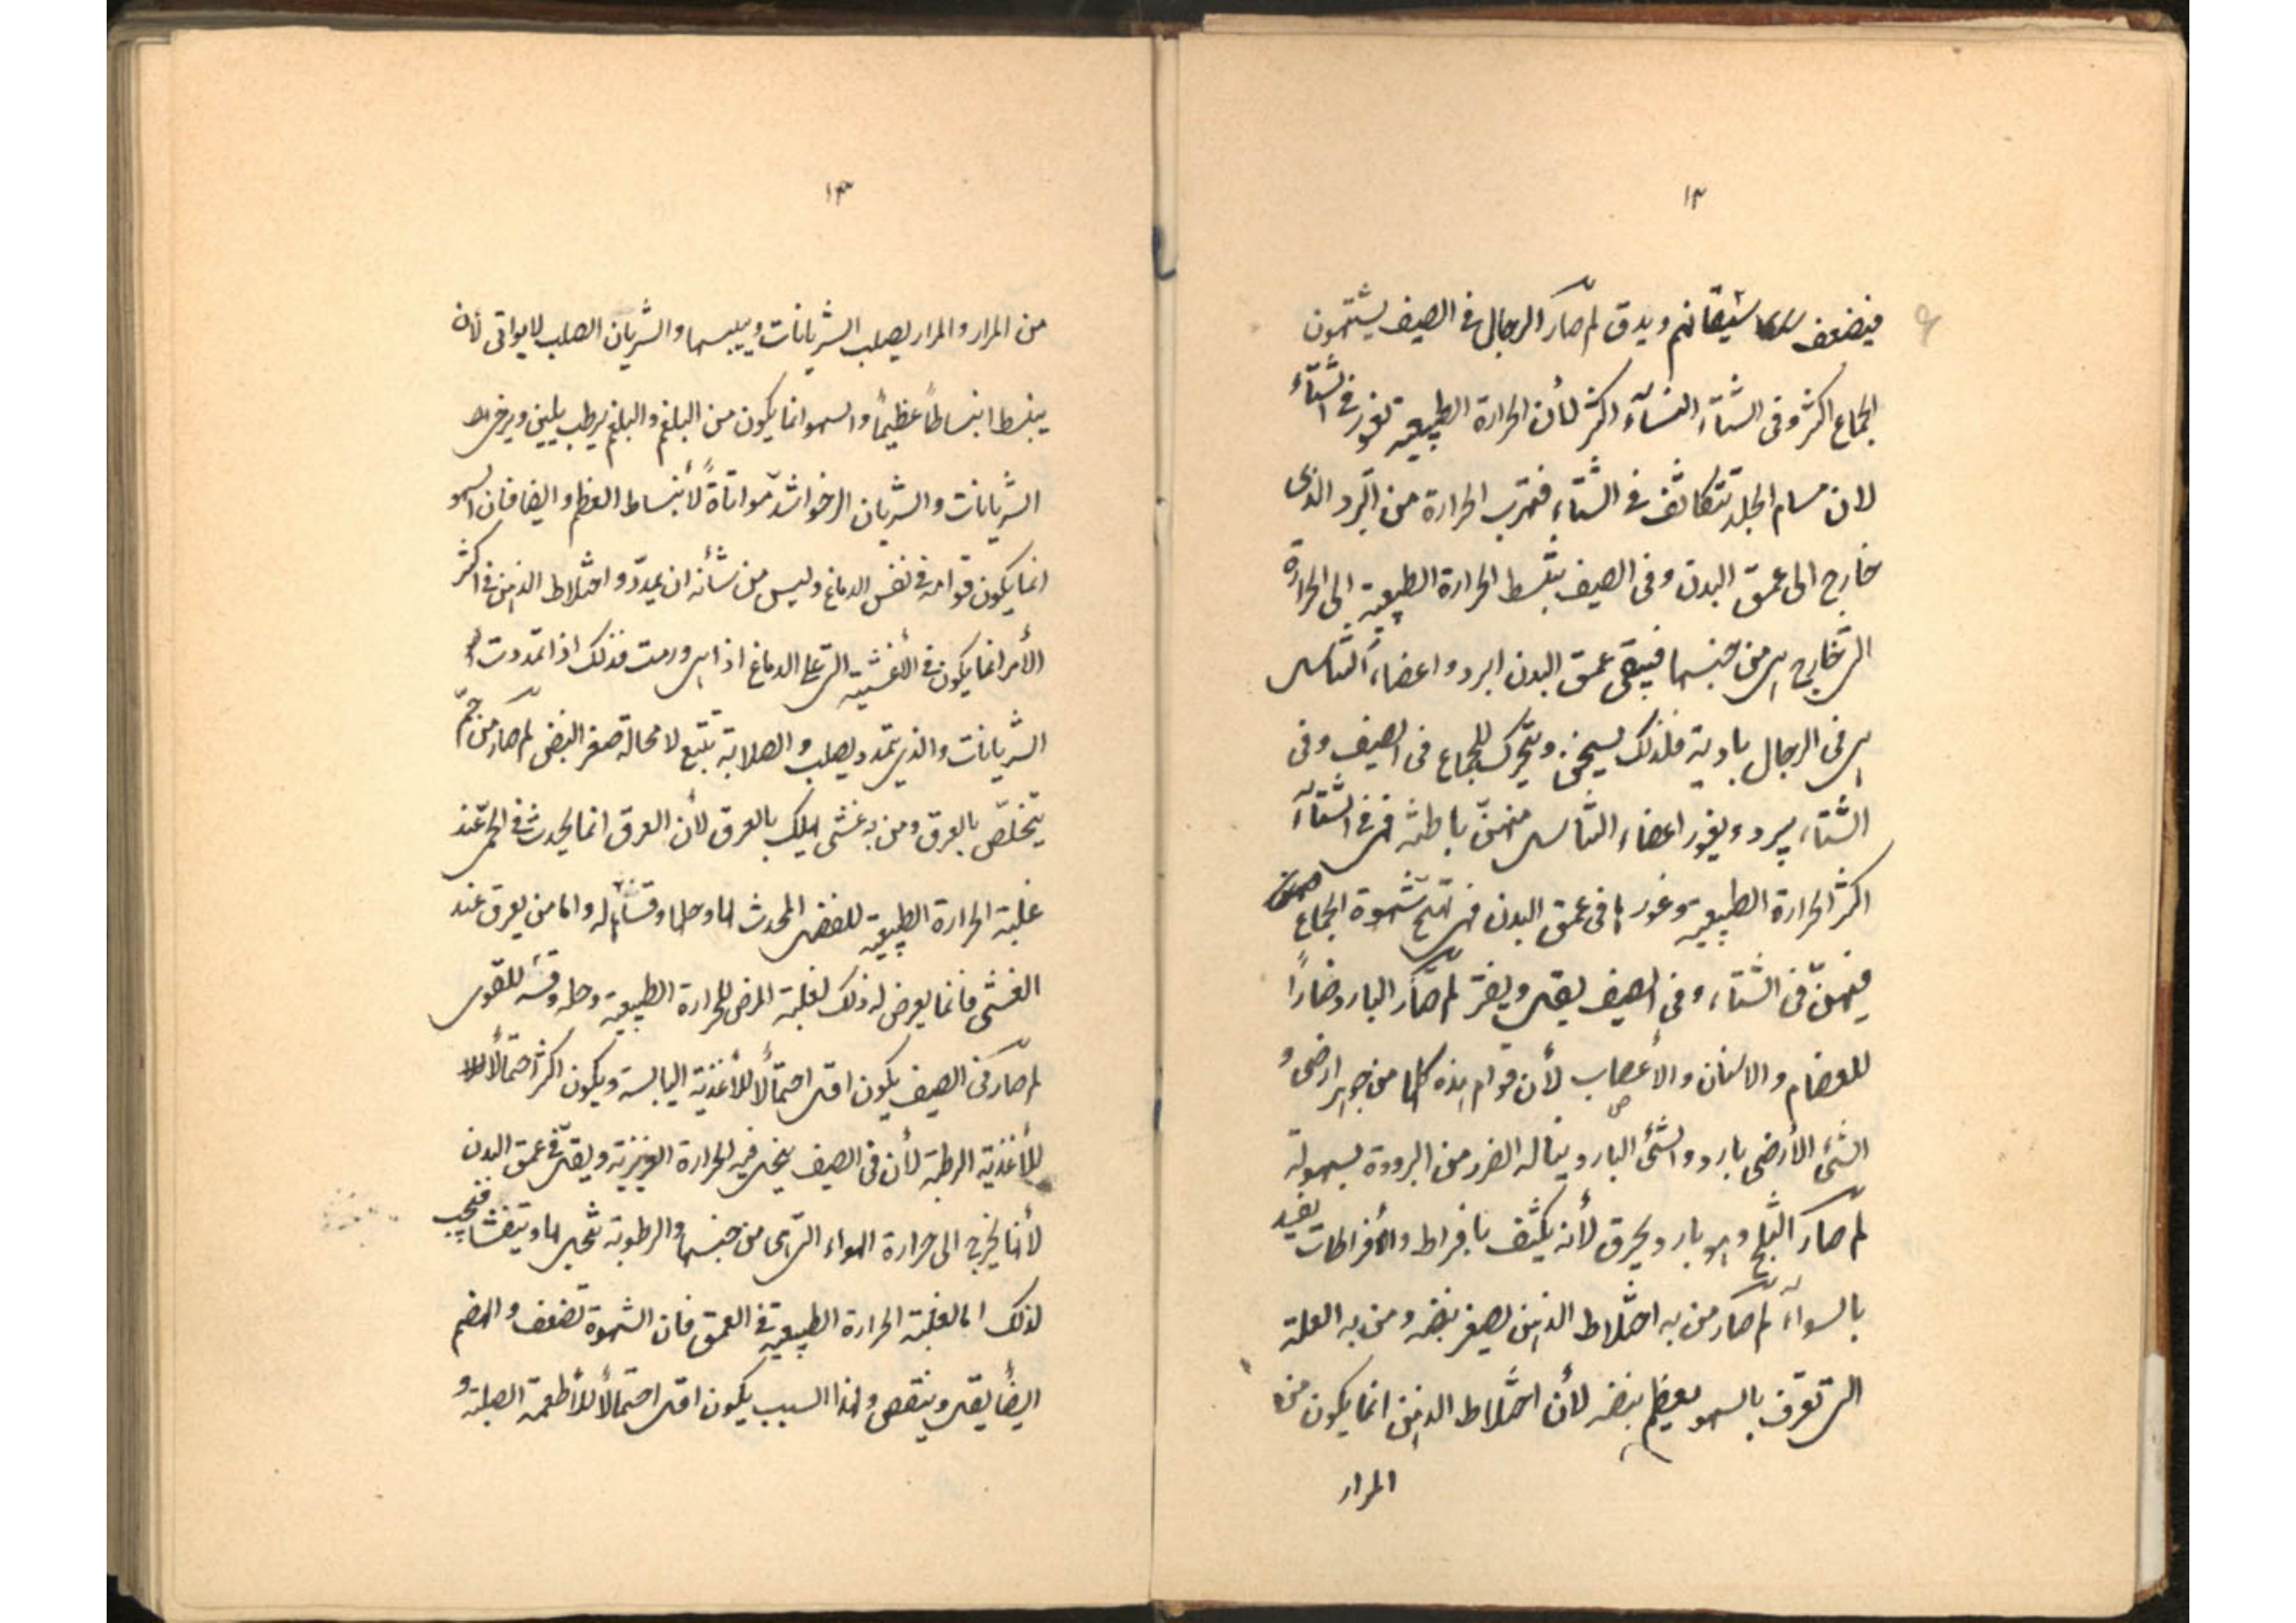 ١٢
فيضعف سيقانهم ويدق لم صار الرجال فى الصيف يشتهون
الجماع اكثر وفى الشتاء النساء اكثر لأن الحرارة الطبيعيه تغور فى الشتاء
لان مسام الجلد تتكاثف فى الشتاء فتهرب الحرارة من البرد الذى
خارج الى عمق البدن وفى الصيف ينبسط الحرارة الطبيعية الى الحرارة
التى خارج هى من جنسها فيبقى عمق البدن ابرد واعضاء التناسل
هى فى الرجال بادية فلذلك يسخن ويتحرك للجماع فى الصيف وفى
الشتاء يبرد ويغور اعضاء التناسل منهنّ باطنه فهى فى الشتاء
اكثر الحرارة الطبيعيه وغورها فى عمق البدن فهى تهيّج شهوة الجماع
فيهنّ فى الشتاء وفى الصيف يقل ويفتر لم صار البارد ضارًا
للعضام والاسنان والأعصاب لأن قوام هذه كلها من جوهر ارضى و
الشئ الأرضى بارد والشئ البارد يناله الضرر من البرودة بسهولة
لم صار الثلج وهو بارد يحرق لأنه يكثف بافراط والأفراطات تفيد
بالسواء لم صار من به اختلاط الذهن يصغر نبضه ومن به العلة
التى تعرف بالسهو يعظم نبضه لأن اختلاط الذهن انما يكون من
المرار
١٣
من المرار والمرار يصلب الشريانات وييبسها والشريان الصلب لا يواتى لأن
ينبسط انبساطاً عظيماً والسهو انما يكون من البلغم والبلغم يرطب يلين ويرخى
الشريانات والشريان الرخو اشدّ مواتاةً لأنبساط العظم وايضا فان السهو
انما يكون قوامه فى نفس الدماغ وليس من شأنه ان يمدد واختلاط الذهن فى اكثر
الأمر انما يكون فى الأغشية التى على الدماغ اذا هى ورمت فذلك اذا تمددت
الشريانات والذى يتمدد يصلب والصلابة يتبع لا محالة صغر النبض لم صار من حمّ
يتخلّص بالعرق ومن به غشى يهلك بالعرق لأن العرق انما يحدث فى الحمى عند
غلبة الحرارة الطبيعيه للفضل المحدث لها وحلها وقشاءٍ له واما من يعرق عند
الغشى فانما يعرض له ذلك لغلبة المرض للحرارة الطبيعيه وحله وقشه للقوى
لم صار فى الصيف يكون اقل احتمالًا للأغذية اليابسة ويكون اكثر احتمالًا
للأغذية الرطبة لأن فى الصيف ينحل فيه الحرارة الغريزية ويقل فى عمق البدن
لأنها يخرج الى حرارة الهواء التى هى من جنسها والرطوبة تنحل لها ويتفشا فيجب
لذلك اما لغلبة الحرارة الطبيعيه فى العمق فان الشهوة تضعف والهضم
ايضًا يقل وينقص ولهذا السبب يكون اقل احتمالًا للأطعمة الصلبة و